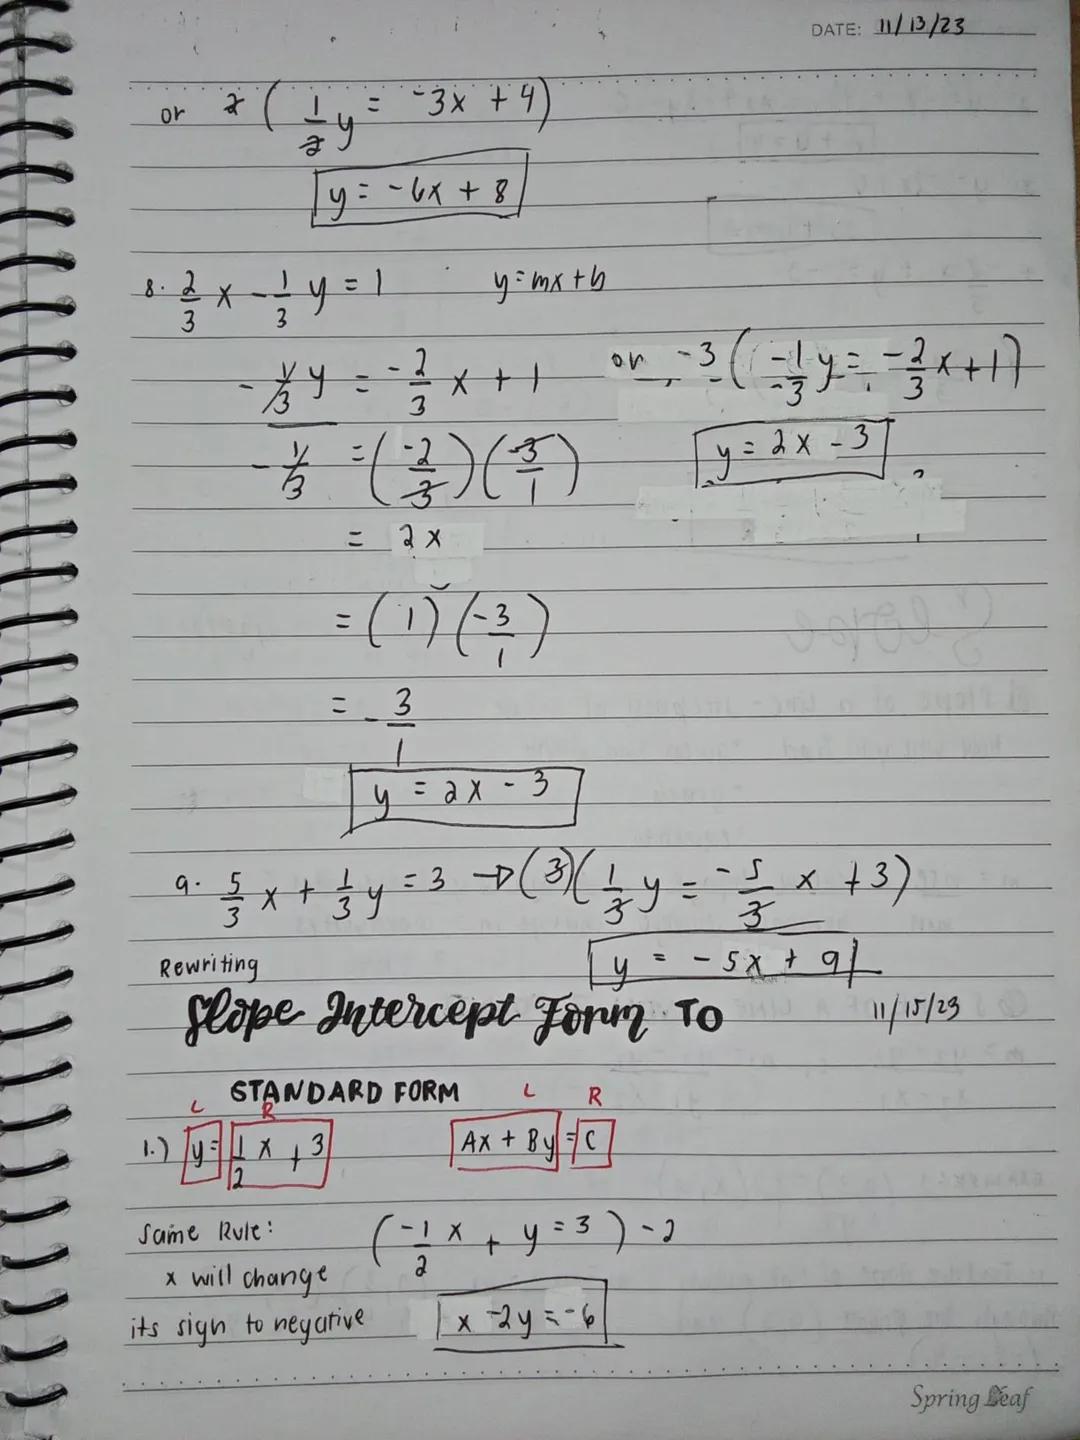 DATE: 11/13/23
or 2 ( 1/2 y = -3x + 4)
y = -6x + 8
8. 2/3 x - 1/3 y = 1 y = mx + b
- 1/3 y = - 2/3 x + 1 or -3 ( -1/-3 y = - 2/3 x + 1)
- 1/3 = ( -2/3 ) ( -3/1 ) y = 2x - 3
= 2x
= ( 1 ) ( -3/1 )
= - 3/1
y = 2x - 3
9. 5/3 x + 1/3 y = 3 → (3)( 1/3 y = - 5/3 x + 3)
Rewriting y = - 5x + 9
Slope Intercept Form To 11/15/23
STANDARD FORM L R
L R
1.) y = 1/2 x + 3 Ax + By = C
Same Rule: ( -1/2 x + y = 3 ) - 2
x will change
its sign to negative x -2y = -6
Spring Leaf